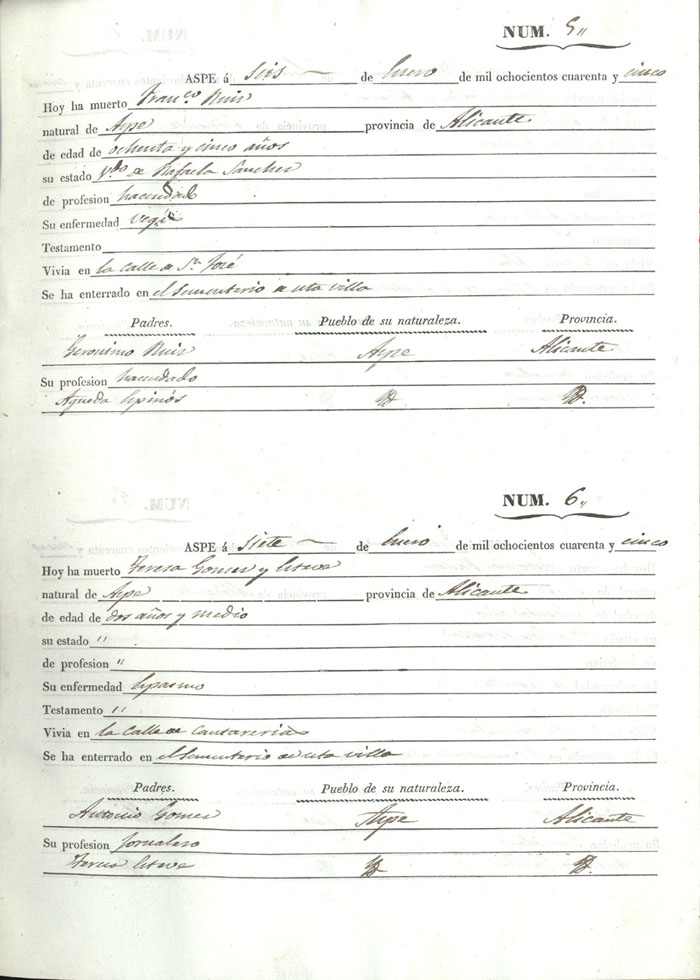 NUM. 5,,
ASPE á seis de Enero de mil ochocientos cuarenta y cinco
Hoy ha muerto Franco. Ruiz
natural de Aspe provincia de Alicante
de edad de ochenta y cinco años
su estado Vdo de Rafaela Sanchez
de profesion hacendado
Su enfermedad
Testamento
Vivia en la calle de Sn. José
Se ha enterrado en el Sementerio de esta villa
Padres. Pueblo de su naturaleza. Provincia.
Geronimo Ruiz Aspe Alicante
Su profesion hacendado
Agueda Espinós
NUM. 6,,
ASPE á siete de Enero de mil ochocientos cuarenta y cinco
Hoy ha muerto Teresa Gomez y Esteve
natural de Aspe provincia de Alicante
de edad de dos años y medio
su estado ,,
de profesion ,,
Su enfermedad Espasmo
Testamento ,,
Vivia en la calle de Cantarerias
Se ha enterrado en el Sementerio de esta villa
Padres. Pueblo de su naturaleza. Provincia.
Antonio Gomez Aspe Alicante
Su profesion Jornalero
Teresa Esteve